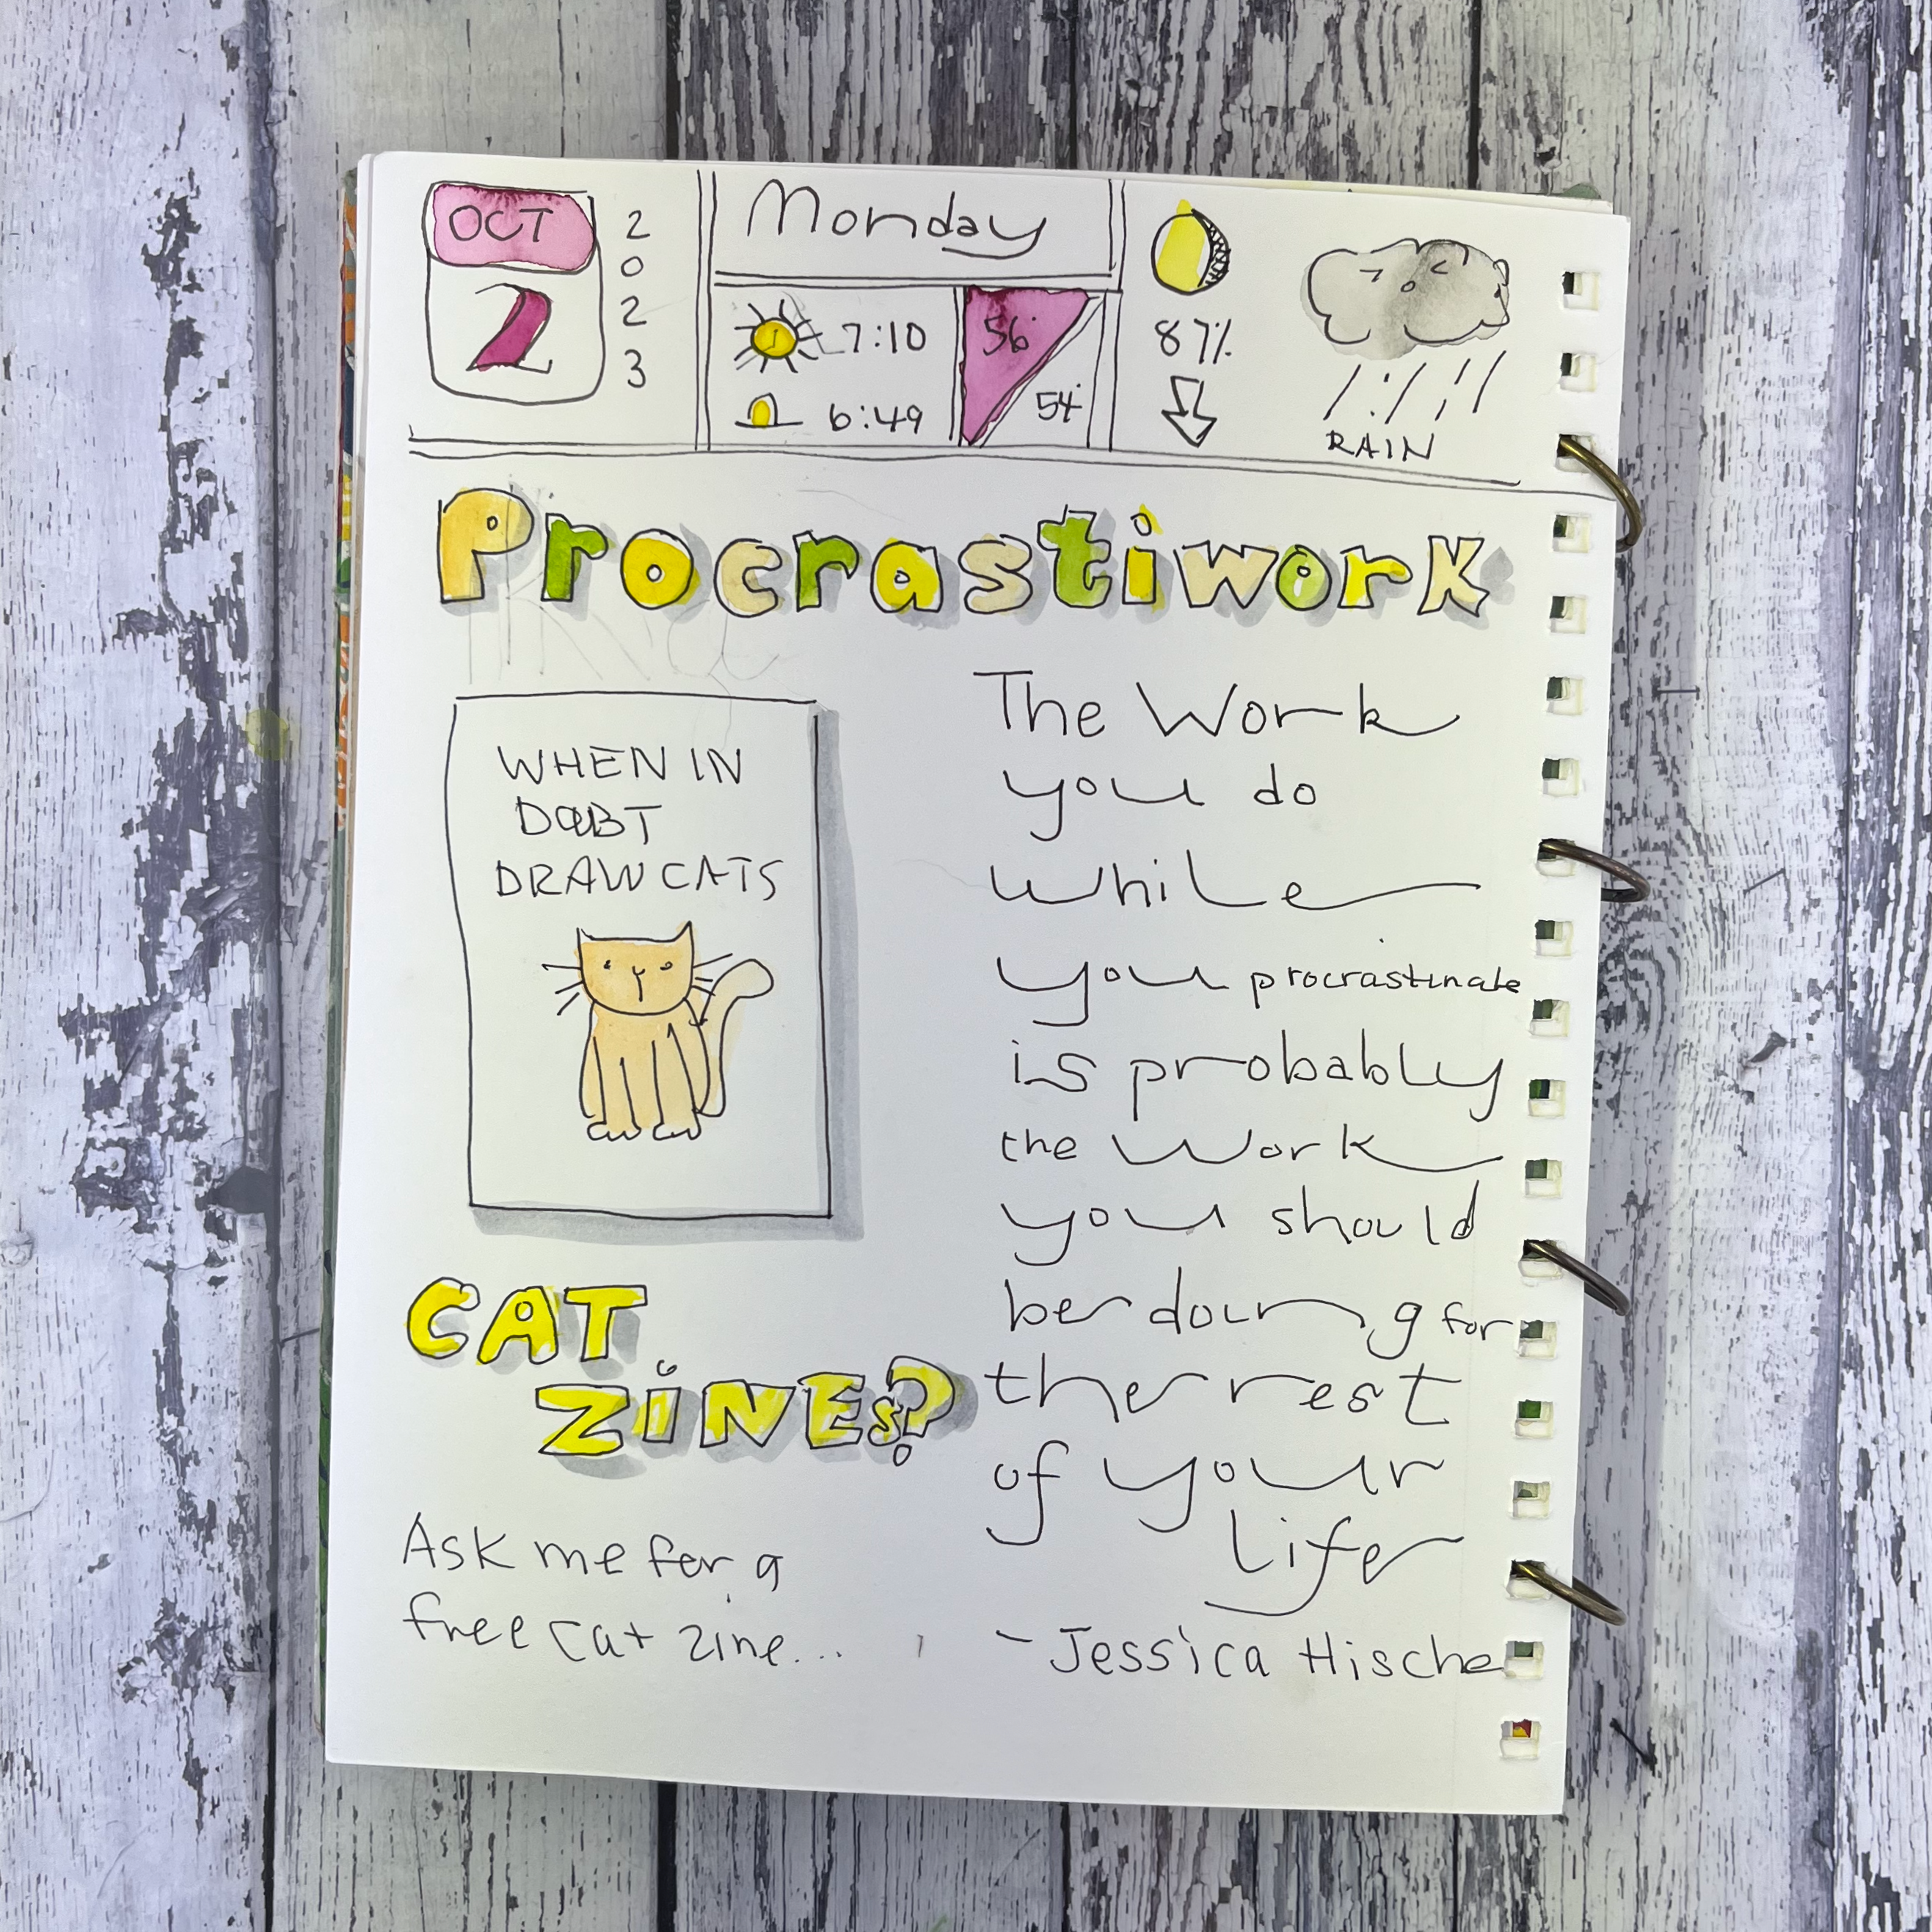 OCT
2
2
0
2
3
Monday
7:10
6:49
56°
54°
87%
RAIN
Procrastiwork
WHEN IN
DOUBT
DRAW CATS
CAT
ZiNEs?
Ask me for a
free cat zine...
The Work
you do
while
you procrastinate
is probably
the work
you should
be doing for
the rest
of your
life
- Jessica Hische